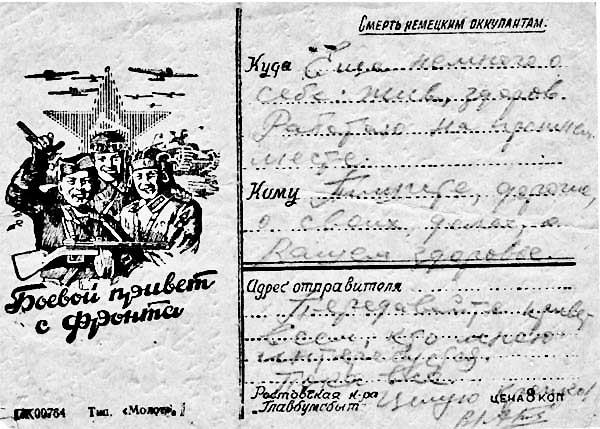 Смерть немецким оккупантам.
Куда Еще немного о
себе: жив, здоров
Работаю на прежнем
месте.
Кому Пишите, дорогие,
о своих делах, о
Вашем здоровье.
Боевой привет
с фронта
Адрес отправителя
Передавайте привет
Всем, кто мною
интересуется.
Ростовская к-ра
Главбумсбыт
Целую Крепко
ЦЕНА 8 КОП
ПК00764 Тип. «Молот»